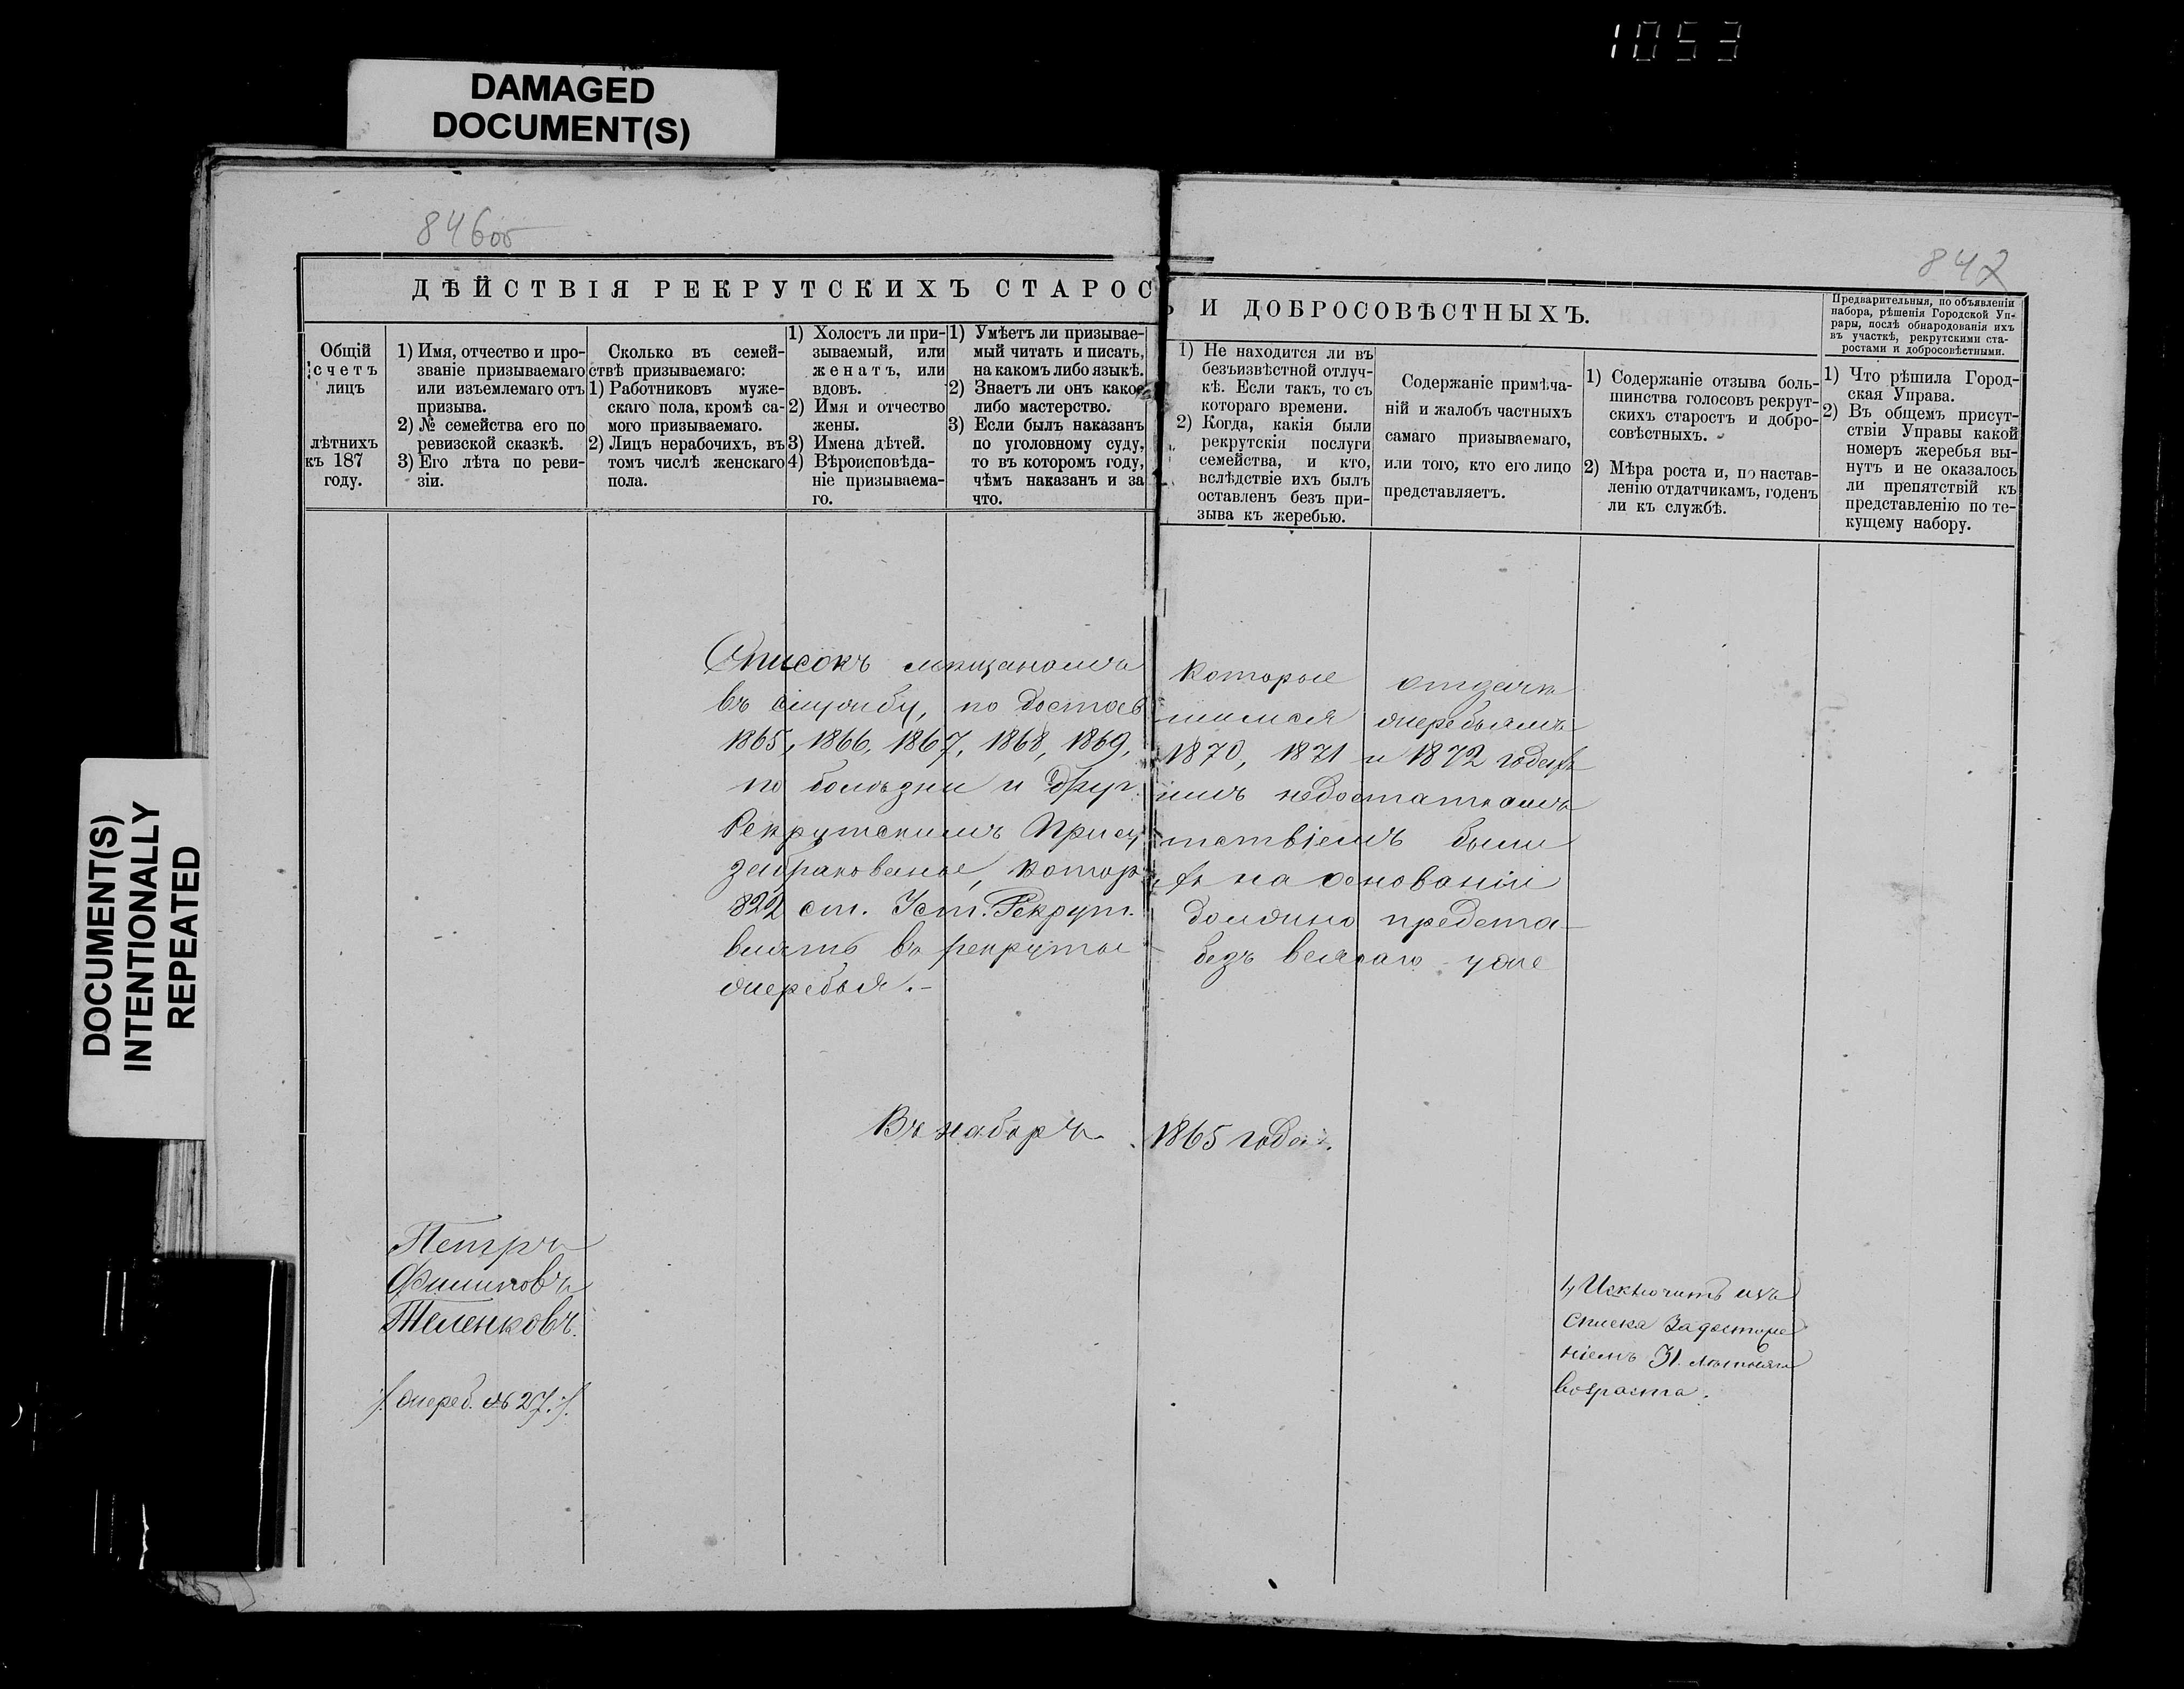 1053
DAMAGED
DOCUMENT(S)
DOCUMENT(S)
INTENTIONALLY
REPEATED
846об
847
ДѢЙСТВІЯ РЕКРУТСКИХЪ СТАРОС
Ъ И ДОБРОСОВѢСТНЫХЪ.
Общій
счетъ
лицъ
лѣтнихъ
къ 187
году.
1) Имя, отчество и про-
званіе призываемаго
или изъемлемаго отъ
призыва.
2) № семейства его по
ревизской сказкѣ.
3) Его лѣта по реви-
зіи.
Сколько въ семей-
ствѣ призываемаго:
1) Работниковъ муже-
скаго пола, кромѣ са-
мого призываемаго.
2) Лицъ нерабочихъ, въ
томъ числѣ женскаго
пола.
1) Холостъ ли при-
зываемый, или
женатъ, или
вдовъ.
2) Имя и отчество
жены.
3) Имена дѣтей.
4) Вѣроисповѣда-
ніе призываема-
го.
1) Умѣетъ ли призывае-
мый читать и писать,
на какомъ либо языкѣ.
2) Знаетъ ли онъ какое
либо мастерство.
3) Если былъ наказанъ
по уголовному суду,
то въ которомъ году,
чѣмъ наказанъ и за
что.
1) Не находится ли въ
безъизвѣстной отлуч-
кѣ. Если такъ, то съ
котораго времени.
2) Когда, какія были
рекрутскія послуги
семейства, и кто,
вслѣдствіе ихъ былъ
оставленъ безъ при-
зыва къ жеребью.
Содержаніе примѣча-
ній и жалобъ частныхъ
самаго призываемаго,
или того, кто его лицо
представляетъ.
1) Содержаніе отзыва боль-
шинства голосовъ рекрут-
скихъ старостъ и добро-
совѣстныхъ.
2) Мѣра роста и, по настав-
ленію отдатчикамъ, годенъ
ли къ службѣ.
Предварительныя, по объявленіи
набора, рѣшенія Городской Уп-
равы, послѣ обнародованія ихъ
въ участкѣ, рекрутскими ста-
ростами и добросовѣстными.
1) Что рѣшила Город-
ская Управа.
2) Въ общемъ присут-
ствіи Управы какой
номеръ жеребья вы-
нутъ и не оказалось
ли препятствій къ
представленію по те-
кущему набору.
Списокъ мѣщанамъ которые отдачи
въ службу, по достав шимся жеребьямъ
1865, 1866, 1867, 1868, 1869, 1870, 1871 и 1872 годахъ
по болѣзни и друг имъ недостаткамъ
Рекрутскимъ Прису тствіемъ были
забракованые, котор хъ на основаніи
822 ст. Уст. Рекрут. должно предста-
влять въ рекруты безъ всякаго уже
жеребья.-
Въ наборъ 1865 года.
Петръ
Филиповъ
Теленковъ.
/. жереб. № 27. /.
1) Исключить изъ
списка за достиже
ніемъ 31 лѣтняго
возраста.